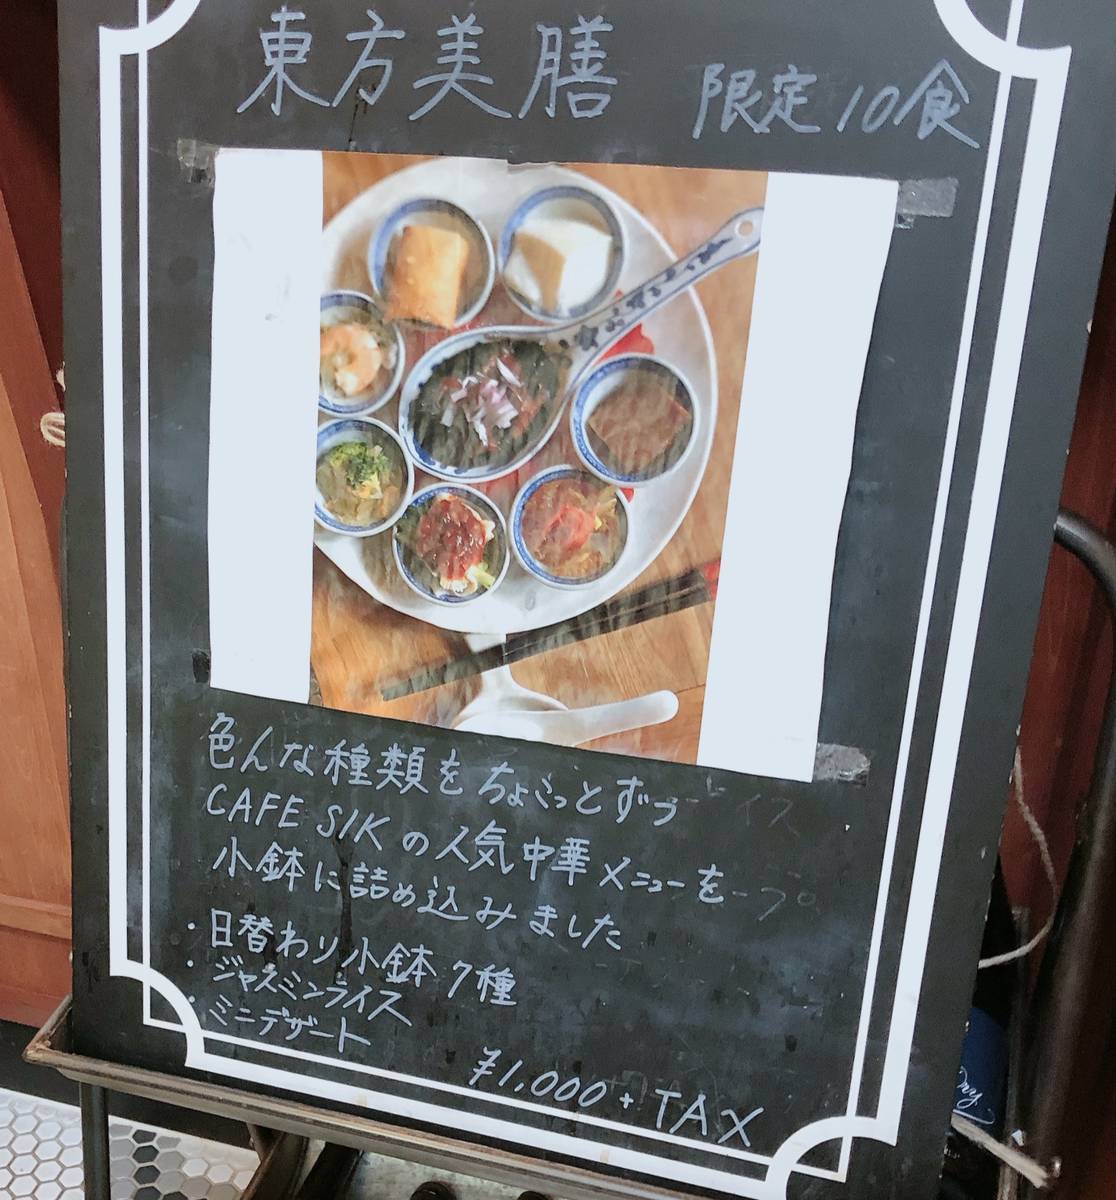 東方美膳
限定10食
色んな種類をちょこっとずつ
CAFE SIKの人気中華メニューを
小鉢に詰め込みました
・日替わり小鉢7種
・ジャスミンライス
・ミニデザート
¥1,000+TAX